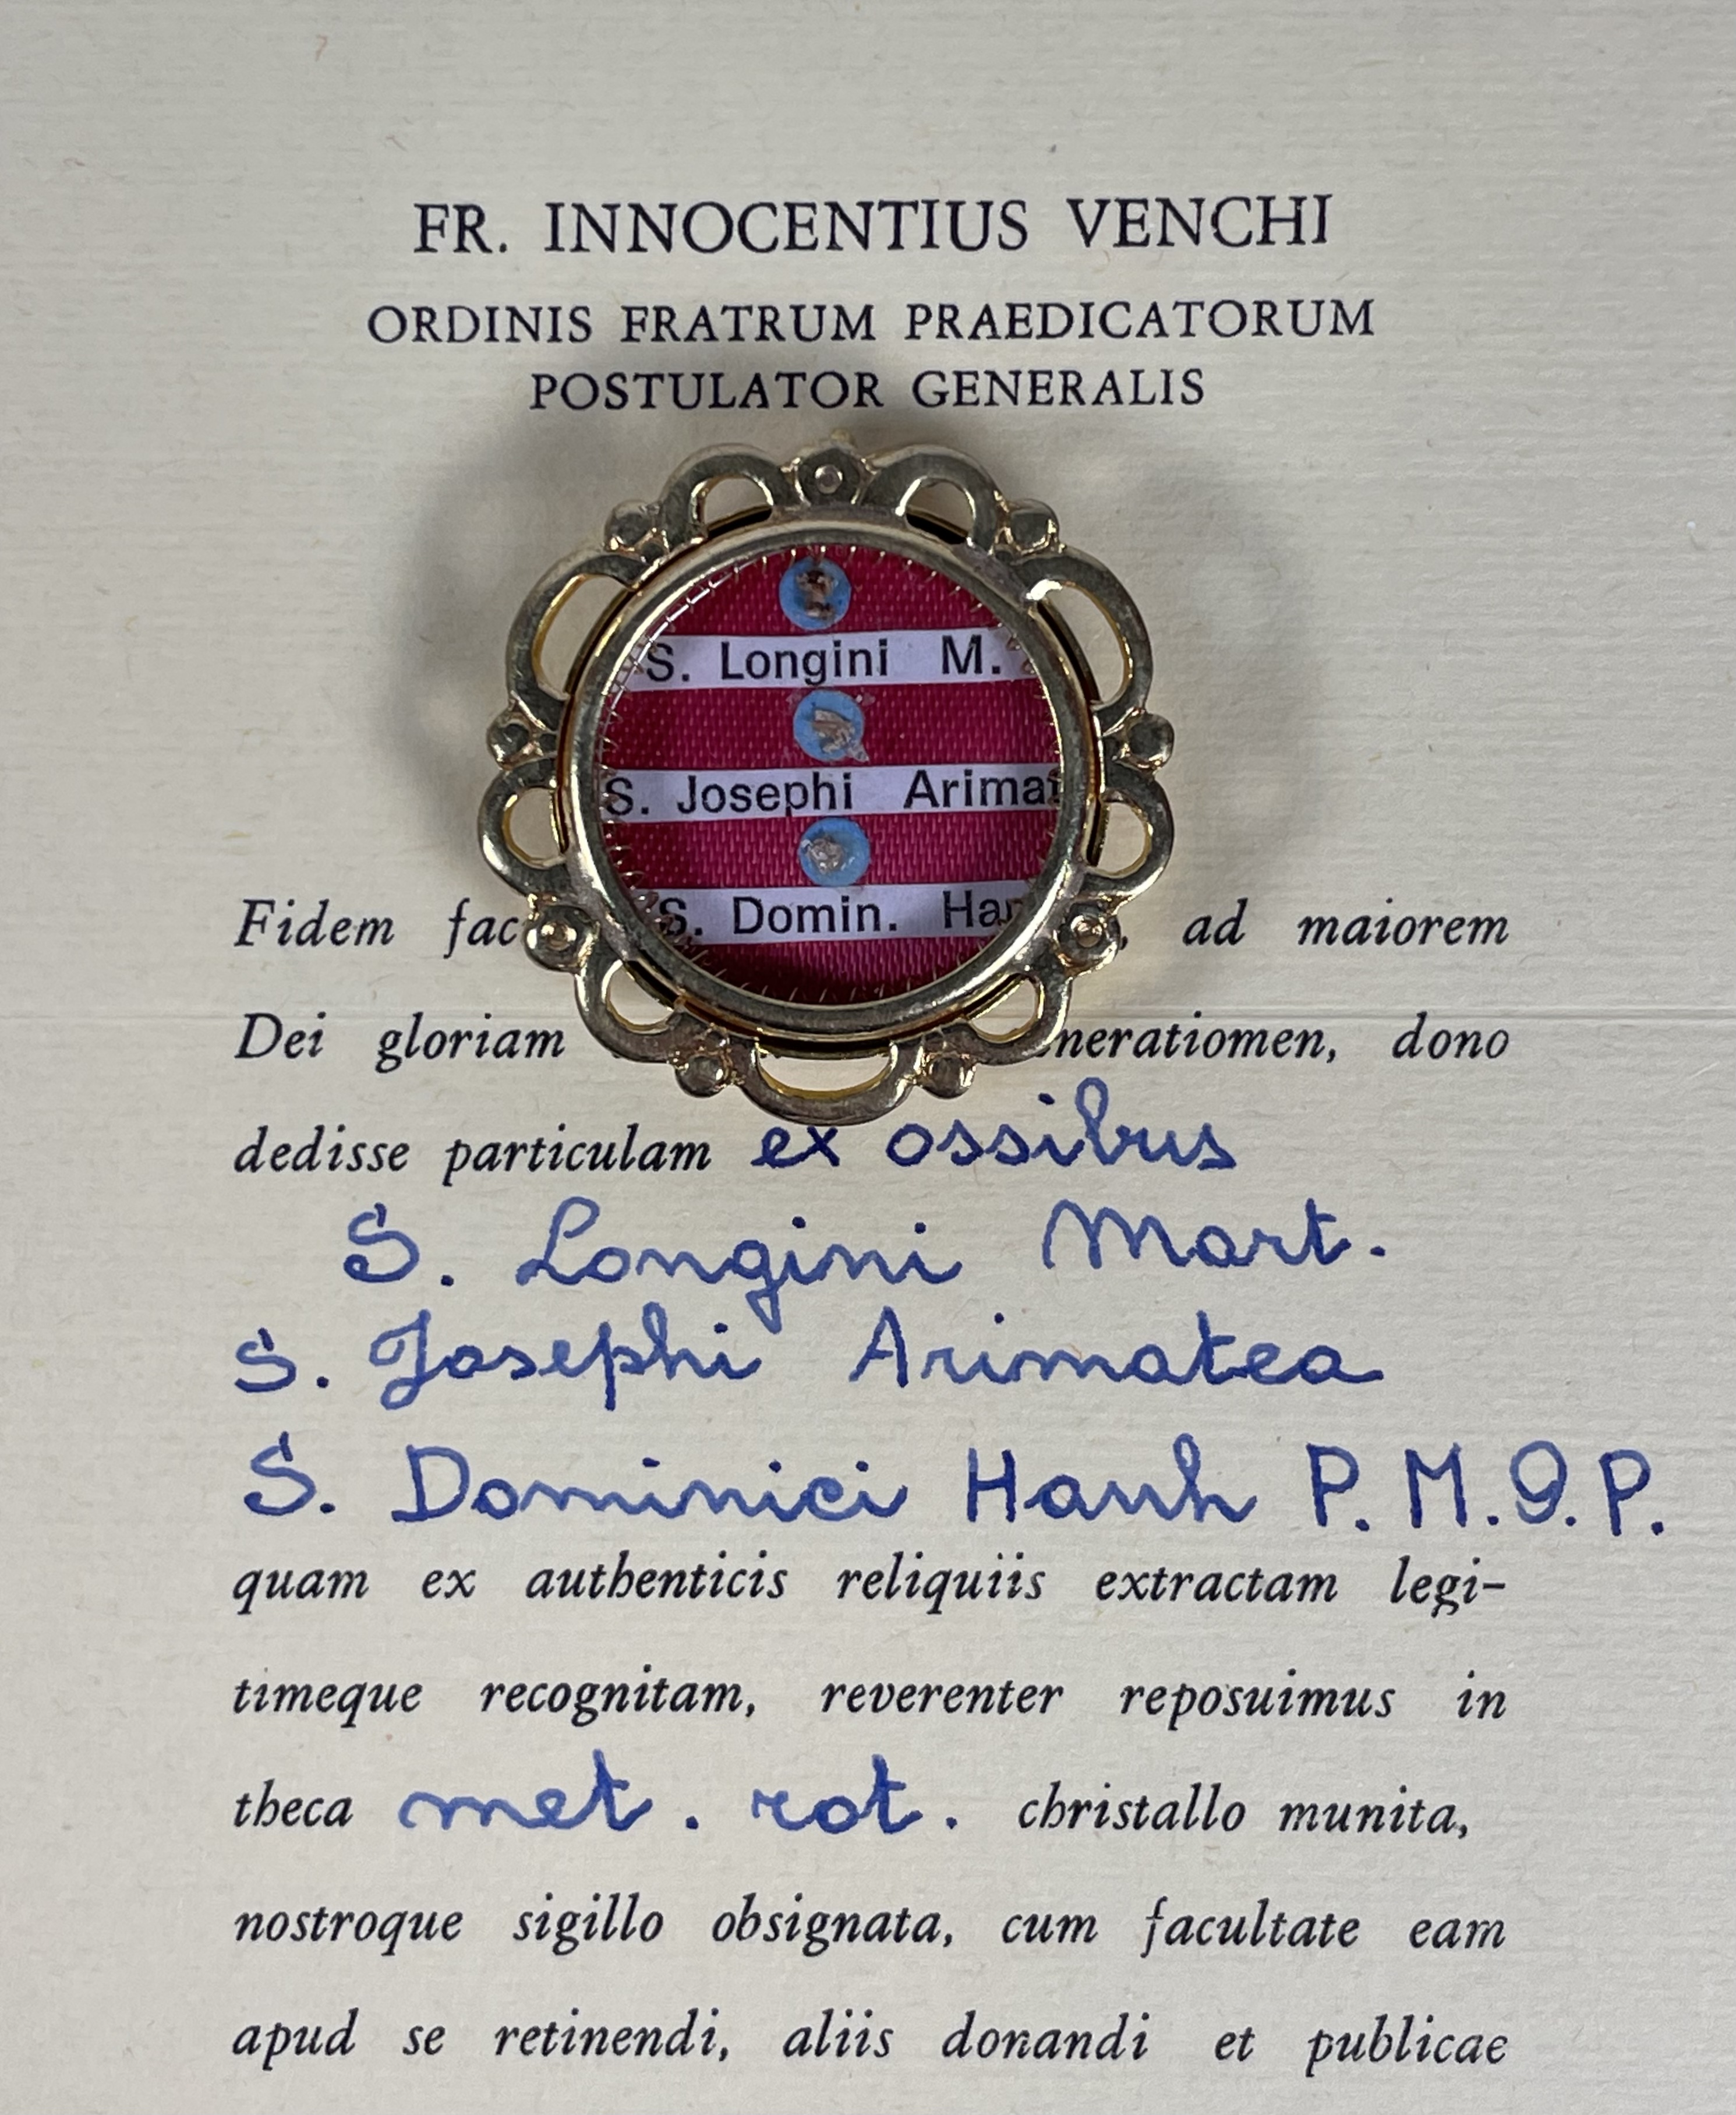 FR. INNOCENTIUS VENCHI
ORDINIS FRATRUM PRAEDICATORUM
POSTULATOR GENERALIS
S. Longini M.
S. Josephi Arimat
S. Domin. Han
Fidem fac , ad maiorem
Dei gloriam neratiomen, dono
dedisse particulam ex ossibus
S. Longini Mart.
S. Josephi Arimatea
S. Dominici Hanh P. M. O. P.
quam ex authenticis reliquiis extractam legi-
timeque recognitam, reverenter reposuimus in
theca met. rot. christallo munita,
nostroque sigillo obsignata, cum facultate eam
apud se retinendi, aliis donandi et publicae